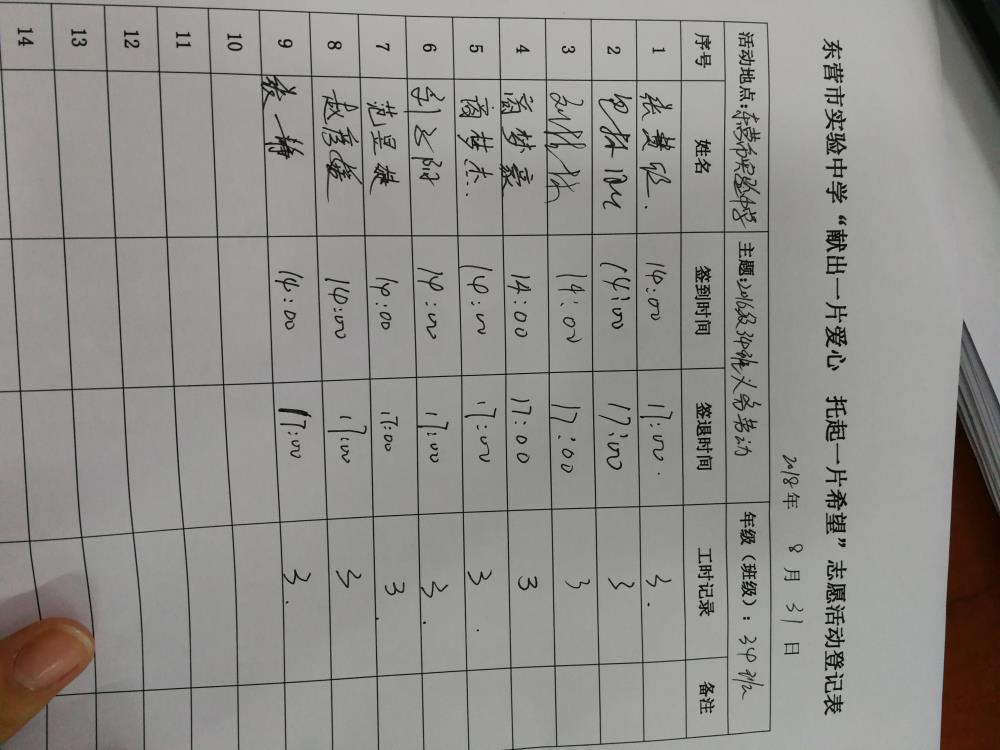 东营市实验中学“献出一片爱心 托起一片希望”志愿活动登记表
2018年 8月 31日
活动地点:东营市实验中学 主题:2016级34班义务劳动 年级(班级):34班
序号 姓名 签到时间 签退时间 工时记录 备注
1 张慧欣. 14:00 17:00. 3.
2 14:00 17:00 3
3 14:00 17:00 3
4 商梦豪 14:00 17:00 3
5 商梦杰. 14:00 17:00 3.
6 14:00 17:00 3.
7 范昱婕 14:00 17:00 3.
8 赵彦媛 14:00 17:00 3
9 张一楠 14:00 17:00 3.
10
11
12
13
14